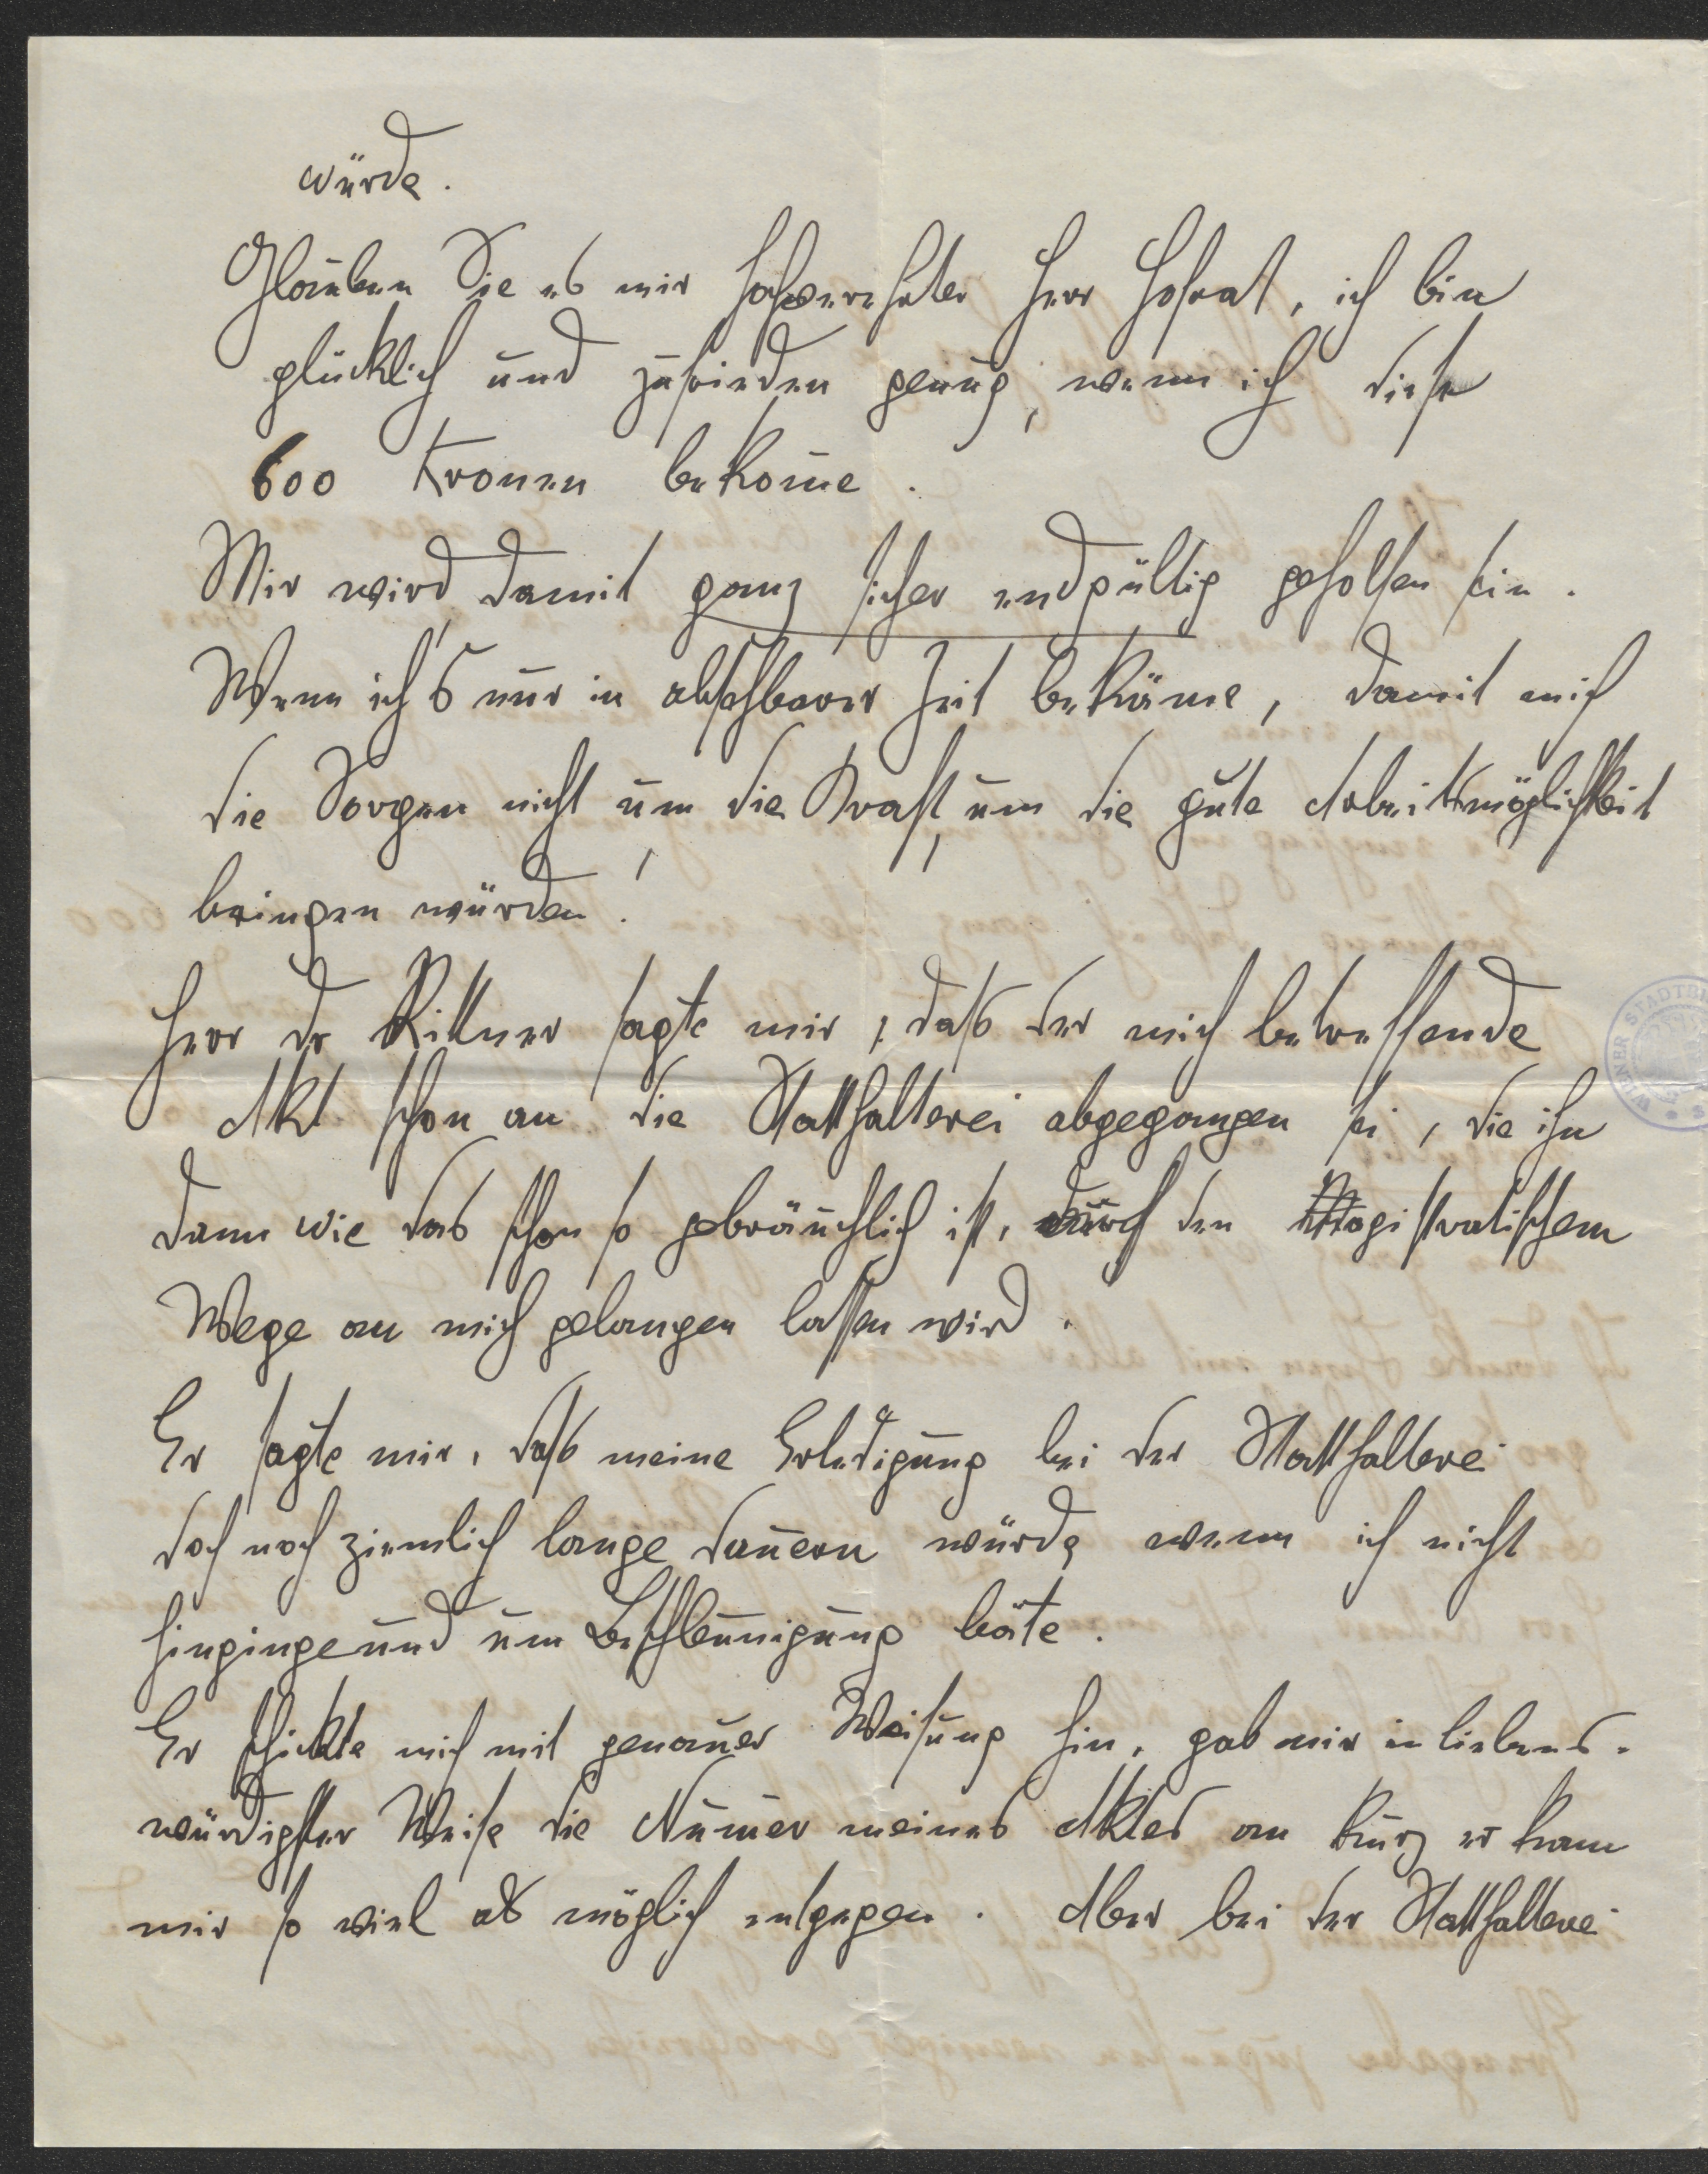 würde.
Glauben Sie es mir hochverehrter Herr Hofrat, ich bin
glücklich und zufrieden genug, wenn ich diese
600 Kronen bekom̅e.
Mir wird damit ganz sicher endgültig geholfen sein.
Wenn ich's nur in absehbarer Zeit bekäme, damit mich
die Sorgen nicht um die Kraft, um die gute Arbeitsmöglichkeit
bringen würden!
Herr Dr Rittner sagte mir, daß der mich betreffende
Akt schon an die Statthalterei abgegangen sei, die ihn
dann wie das schon so gebräuchlich ist, durch den Magistratischem
Wege an mich gelangen lassen wird.
Er sagte mir, daß meine Erledigung bei der Statthalterei
doch noch ziemlich lange dauern würde, wenn ich nicht
hinginge und um Beschleunigung bäte.
Er schickte mich mit genauer Weisung hin, gab mir in liebens-
würdigster Weise die Num̅er meines Aktes an kurz er kam
mir so viel als möglich entgegen. Aber bei der Statthalterei
WIENER STADTBI